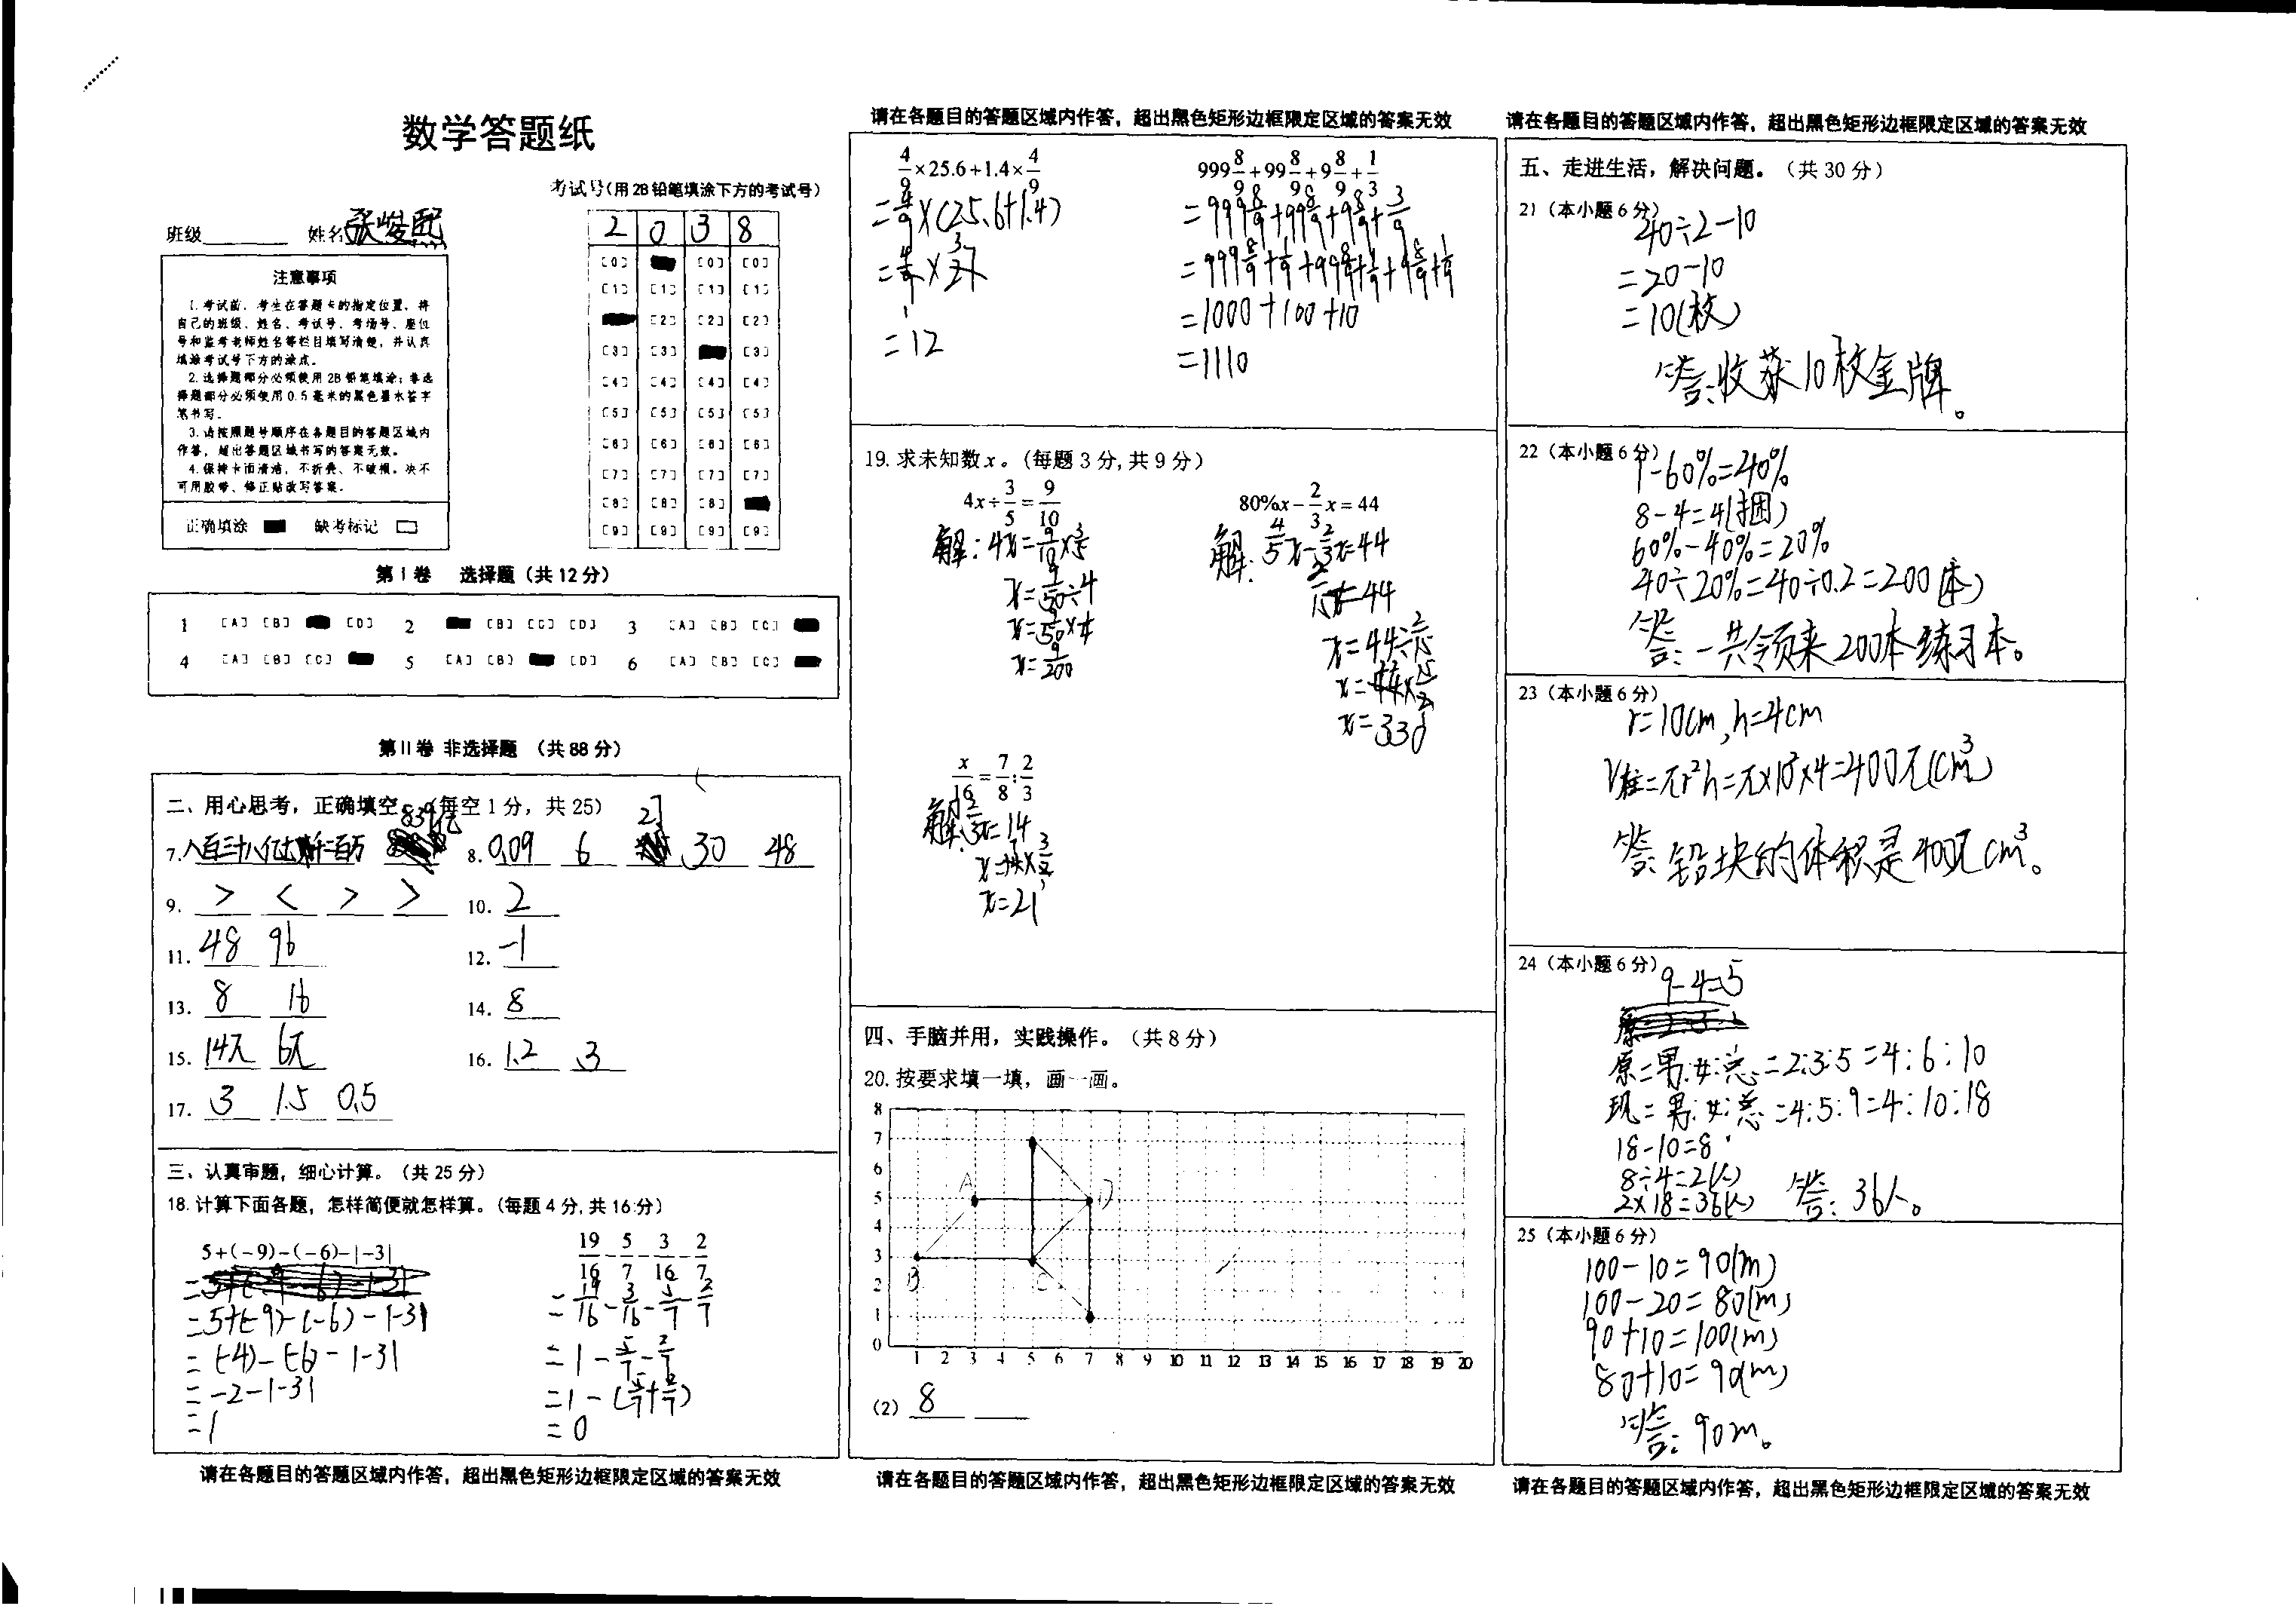 数学答题纸
考试号(用2B铅笔填涂下方的考试号)
班级 姓名张峻熙
2 0 3 8
注意事项
1.考试前，考生在答题卡的指定位置，将
自己的班级、姓名、考试号、考场号、座位
号和监考老师姓名等栏目填写清楚，并认真
填涂考试号下方的涂点。
2.选择题部分必须使用2B铅笔填涂；非选
择题部分必须使用0.5毫米的黑色墨水签字
笔书写。
3.请按照题号顺序在各题目的答题区域内
作答，超出答题区域书写的答案无效。
4.保持卡面清洁，不折叠、不破损。决不
可用胶带、修正贴改写答案。
正确填涂 缺考标记
[0] [0] [0]
[1] [1] [1] [1]
[2] [2] [2]
[3] [3] [3]
[4] [4] [4] [4]
[5] [5] [5] [5]
[6] [6] [6] [6]
[7] [7] [7] [7]
[8] [8] [8]
[9] [9] [9] [9]
第Ⅰ卷 选择题（共12分）
1 [A] [B] [D] 2 [B] [C] [D] 3 [A] [B] [C]
4 [A] [B] [C] 5 [A] [B] [D] 6 [A] [B] [C]
第Ⅱ卷 非选择题 （共88分）
二、用心思考，正确填空。（每空1分，共25）
7. 839亿 8. 0.09 6 27 30 48
9. > < > > 10. 2
11. 48 96 12. -1
13. 8 16 14. 8
15. 14π 6π 16. 1.2 3
17. 3 1.5 0.5
三、认真审题，细心计算。（共25分）
18.计算下面各题，怎样简便就怎样算。(每题4分,共16分)
5+(-9)-(-6)-|-3|
=5+(-9)-(-6)-|-3|
=(-4)-(-6)-|-3|
=-2-|-3|
=1
19/16-5/7-3/16-2/7
=19/16-3/16-5/7-2/7
=1-5/7-2/7
=1-(5/7+2/7)
=0
请在各题目的答题区域内作答，超出黑色矩形边框限定区域的答案无效
请在各题目的答题区域内作答，超出黑色矩形边框限定区域的答案无效
4/9×25.6+1.4×4/9
=4/9×(25.6+1.4)
=4/9×27
=12
999 8/9+99 8/9+9 8/9+1/3
=999 8/9+99 8/9+9 8/9+3/9
=999 8/9+1/9+99 8/9+1/9+9 8/9+1/9
=1000+100+10
=1110
19.求未知数x。(每题3分,共9分)
4x÷3/5=9/10
解:4x=9/10×3/5
x=9/50÷4
x=9/50×4
x=9/200
80%x-2/3x=44
解:4/5x-2/3x=44
2/15x=44
x=44÷2/15
x=44×15/2
x=330
x/16=7/8:2/3
解:2/3x=14
x=14×3/2
x=21
四、手脑并用，实践操作。（共8分）
20.按要求填一填，画一画。
8
7
6
5
4
3
2
1
0
A D
B C
1 2 3 4 5 6 7 8 9 10 11 12 13 14 15 16 17 18 19 20
(2) 8
请在各题目的答题区域内作答，超出黑色矩形边框限定区域的答案无效
请在各题目的答题区域内作答，超出黑色矩形边框限定区域的答案无效
五、走进生活，解决问题。（共30分）
21（本小题6分）
40÷2-10
=20-10
=10(枚)
答:收获10枚金牌。
22（本小题6分）
1-60%=40%
8-4=4(捆)
60%-40%=20%
40÷20%=40÷0.2=200(本)
答:一共领来200本练习本。
23（本小题6分）
r=10cm,h=4cm
V柱=πr²h=π×10²×4=400π(cm³)
答:铅块的体积是400πcm³。
24（本小题6分）
9-4=5
原=男:女:总=2:3:5=4:6:10
现=男:女:总=4:5:9=4:10:18
18-10=8
8÷4=2(人)
2×18=36(人) 答:36人。
25（本小题6分）
100-10=90(m)
100-20=80(m)
90+10=100(m)
80+10=90(m)
答:90m。
请在各题目的答题区域内作答，超出黑色矩形边框限定区域的答案无效